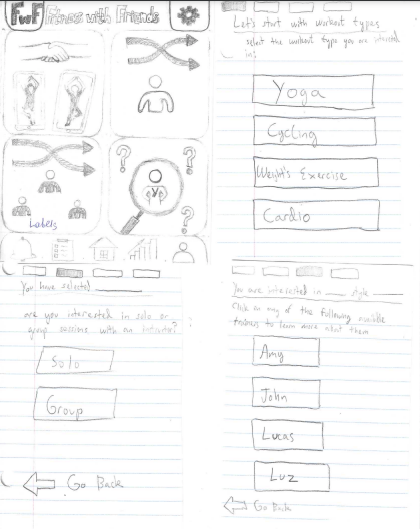 FwF Fitness with Friends
Labels
Let's start with workout types
select the workout type you are interested
in:
Yoga
Cycling
Weight's Exercise
Cardio
You have selected
are you interested in solo or
group sessions with an instructor?
Solo
Group
Go Back
You are interested in style
Click on any of the following available
trainers to learn more about them
Amy
John
Lucas
Luz
Go Back